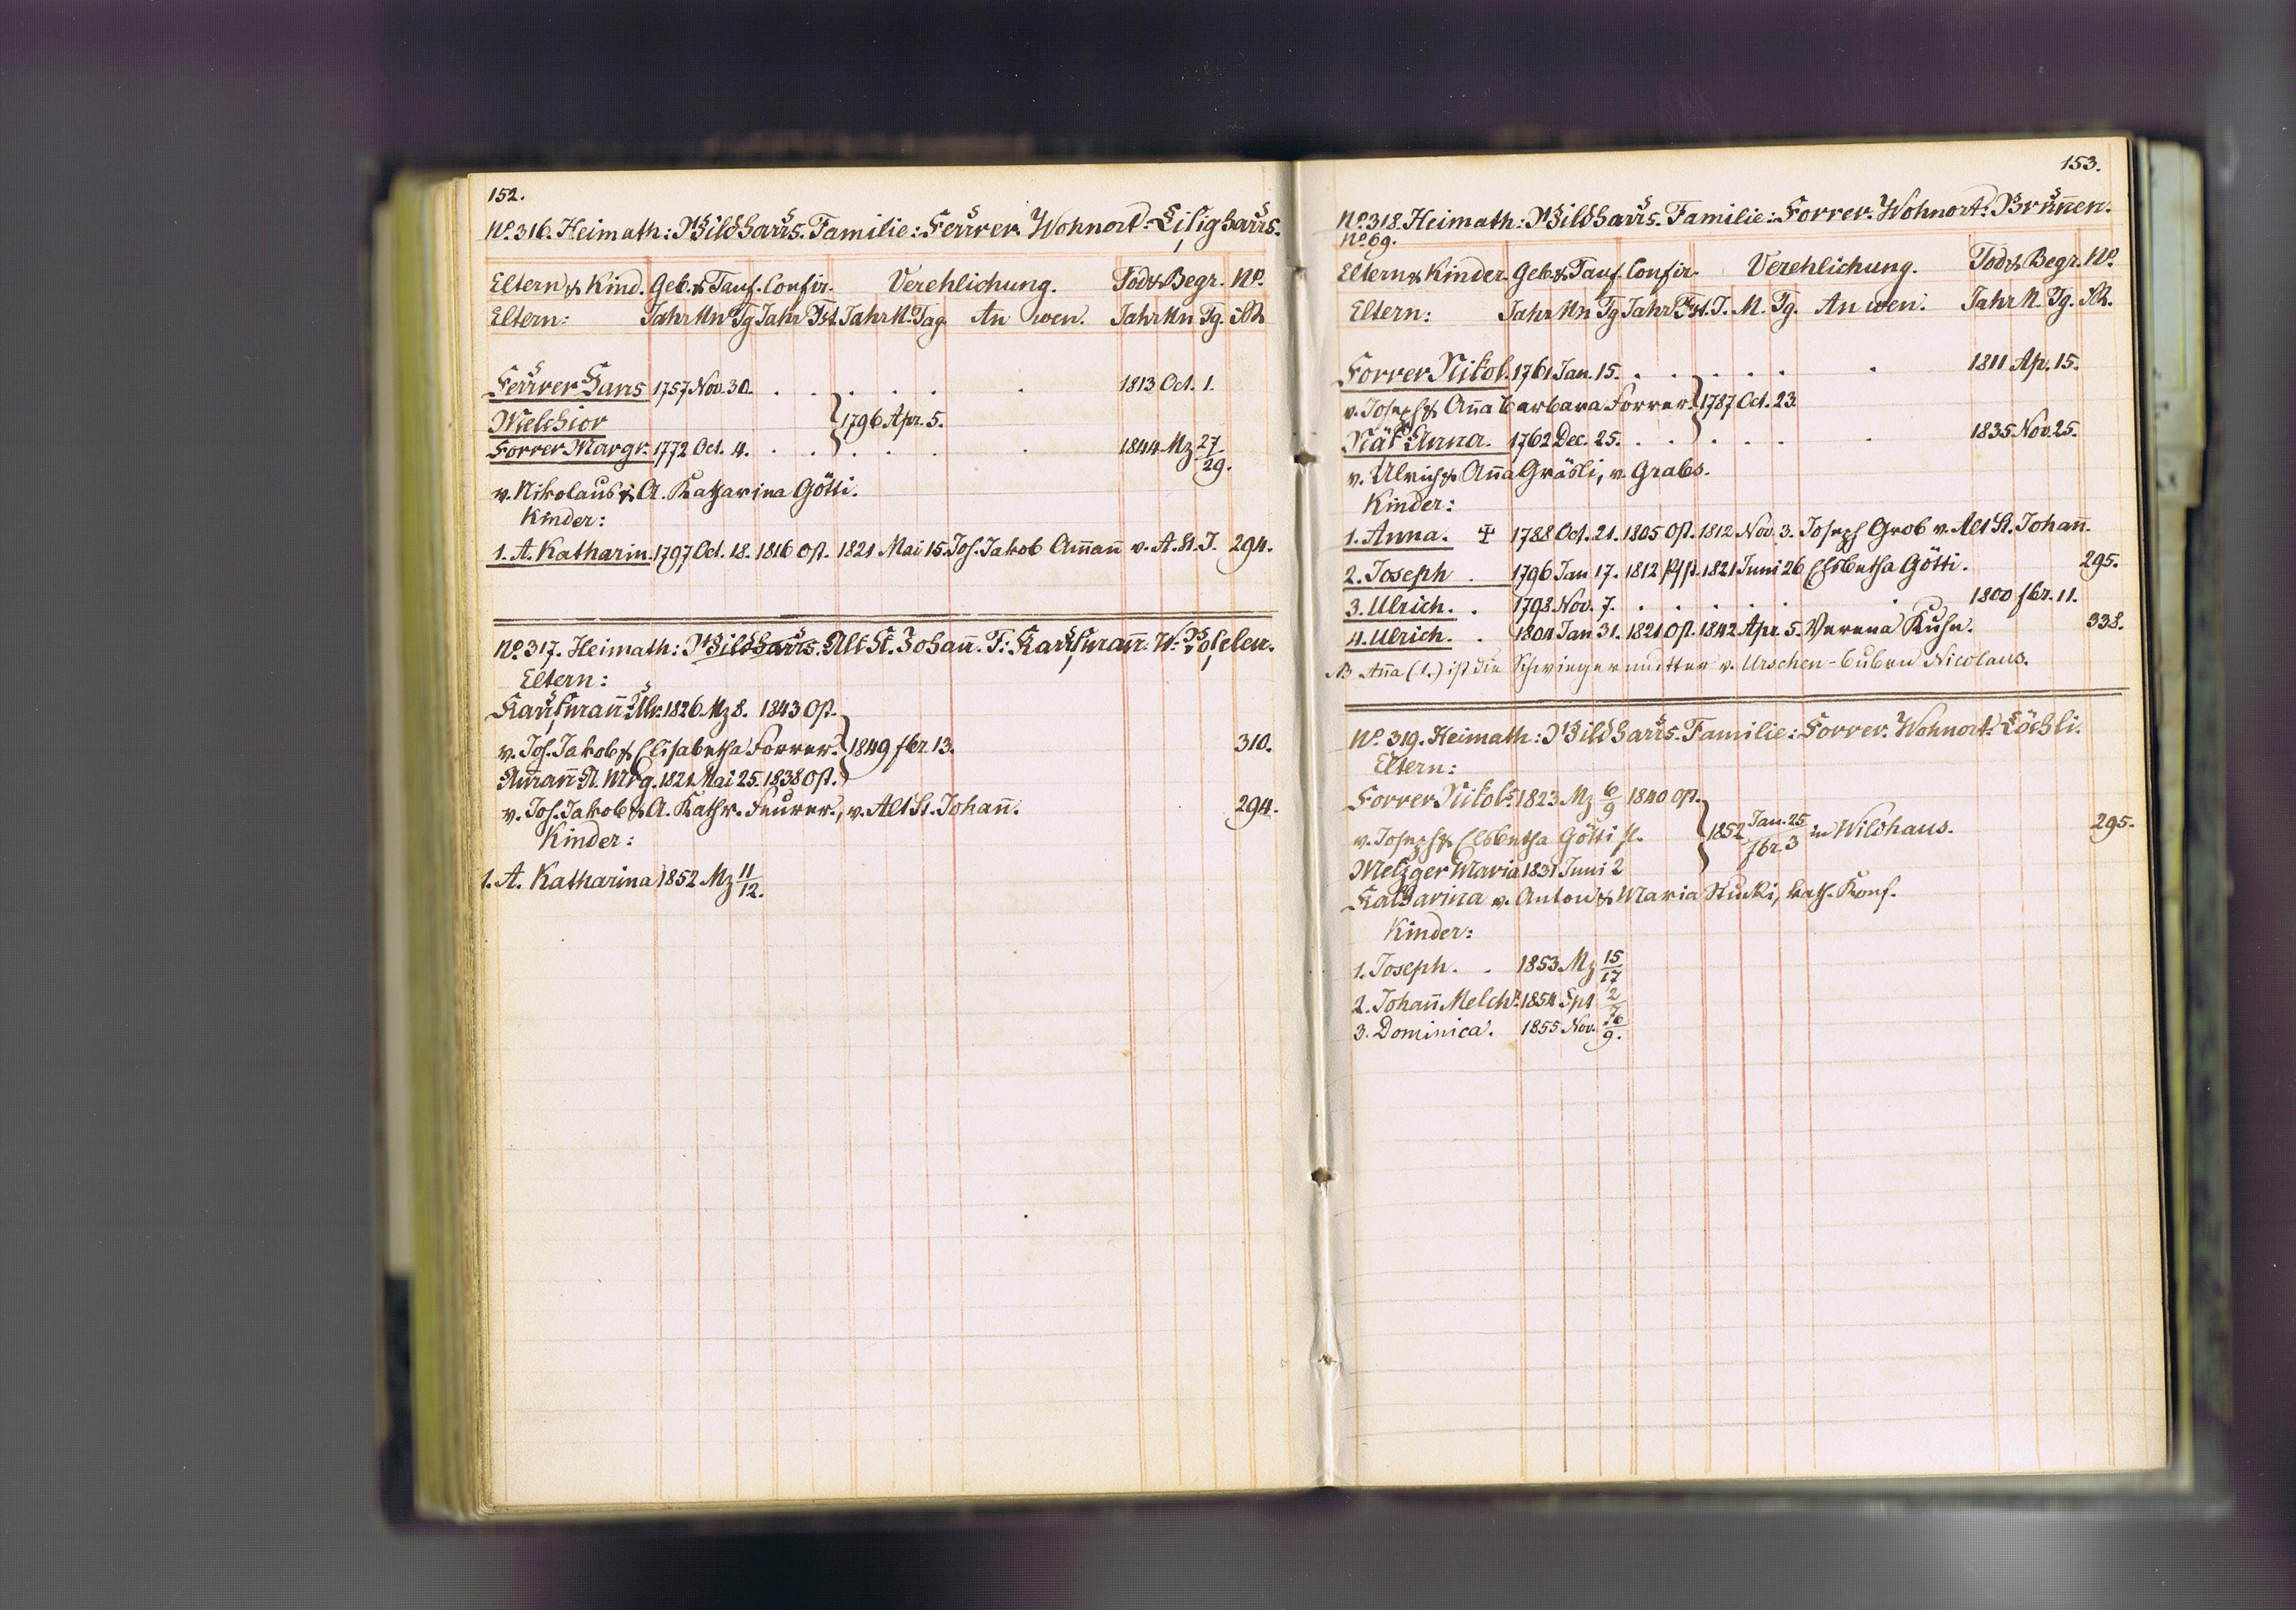 152.
No. 316. Heimath: Wildhaus. Familie: Feurer. Wohnort: Lisighaus.
Eltern & Kind. Geb. & Tauf. Confir. Verehlichung. Tod & Begr. No.
Eltern: Jahr Mn Tg Jahr Fst. Jahr M. Tag. An wen. Jahr Mn Tg.
Feurer Hans 1757 Nov. 30. . . . . . . . 1813 Oct. 1.
Melchior } 1796 Apr. 5.
Forrer Margr. 1772 Oct. 4. . . . . . . 1844 Mz 27/29.
v. Nikolaus & A. Katharina Götti.
Kinder:
1. A. Katharin. 1797 Oct. 18. 1816 Ost. 1821 Mai 15. Jos. Jakob Am̄an̄ v. A. St. J. 294.
No. 317. Heimath: Wildhaus. Alt St. Johan̄. F: Kaufman̄. W:
Eltern:
Kaufman̄ Ulr. 1826 Mz 8. 1843 Ost.
v. Jos. Jakob & Elisabetha Forrer. } 1849 fbr. 13. 310.
Am̄an̄ A. Mrg. 1821 Mai 25. 1838 Ost.
v. Jos. Jakob & A. Kathr. Feurer., v. Alt St. Johan̄. 294.
Kinder:
1. A. Katharina 1852 Mz 11/12.
153.
No. 318. Heimath: Wildhaus. Familie: Forrer. Wohnort: Brun̄en.
No. 69.
Eltern & Kinder. Geb. & Tauf. Confir. Verehlichung. Tod & Begr. No.
Eltern: Jahr Mn Tg Jahr Fst. J. M. Tg. An wen. Jahr M. Tg.
Forrer Nikol. 1761 Jan. 15. . . . . . . 1811 Ap. 15.
v. Joseph & An̄a Barbara Forrer. } 1787 Oct. 23.
Näf Anna. 1762 Dec. 25. . . . . . . 1835 Nov. 25.
v. Ulrich & An̄a Gräsli, v. Grabs.
Kinder:
1. Anna. ✠ 1788 Oct. 21. 1805 Ost. 1812 Nov. 3. Joseph Grob v. Alt St. Johan̄.
2. Joseph . 1796 Jan 17. 1812 Pfst. 1821 Juni 26 Elsbetha Götti. 295.
3. Ulrich. . 1798. Nov. 7. . . . . . . 1800 fbr. 11.
4. Ulrich. . 1804 Jan 31. 1821 Ost. 1842 Apr. 5. Verena Kuhn. 338.
NB An̄a (1.) ist die Schwiegermutter v. Urschen-Buben Nicolaus.
No. 319. Heimath: Wildhaus. Familie: Forrer. Wohnort: Löchli.
Eltern:
Forrer Nikols. 1823 Mz 6/9 1840 Ost.
v. Joseph & Elsbetha Götti } 1852 Jan. 25/fbr. 3 in Wildhaus. 295.
Metzger Maria 1831 Juni 2
Katharina v. Anton & Maria Stucki, kath. Konf.
Kinder:
1. Joseph. . 1853 Mz 15/17
2. Johan̄ Melchr. 1854 Spt 2/7
3. Dominica. 1855 Nov. 6/9.